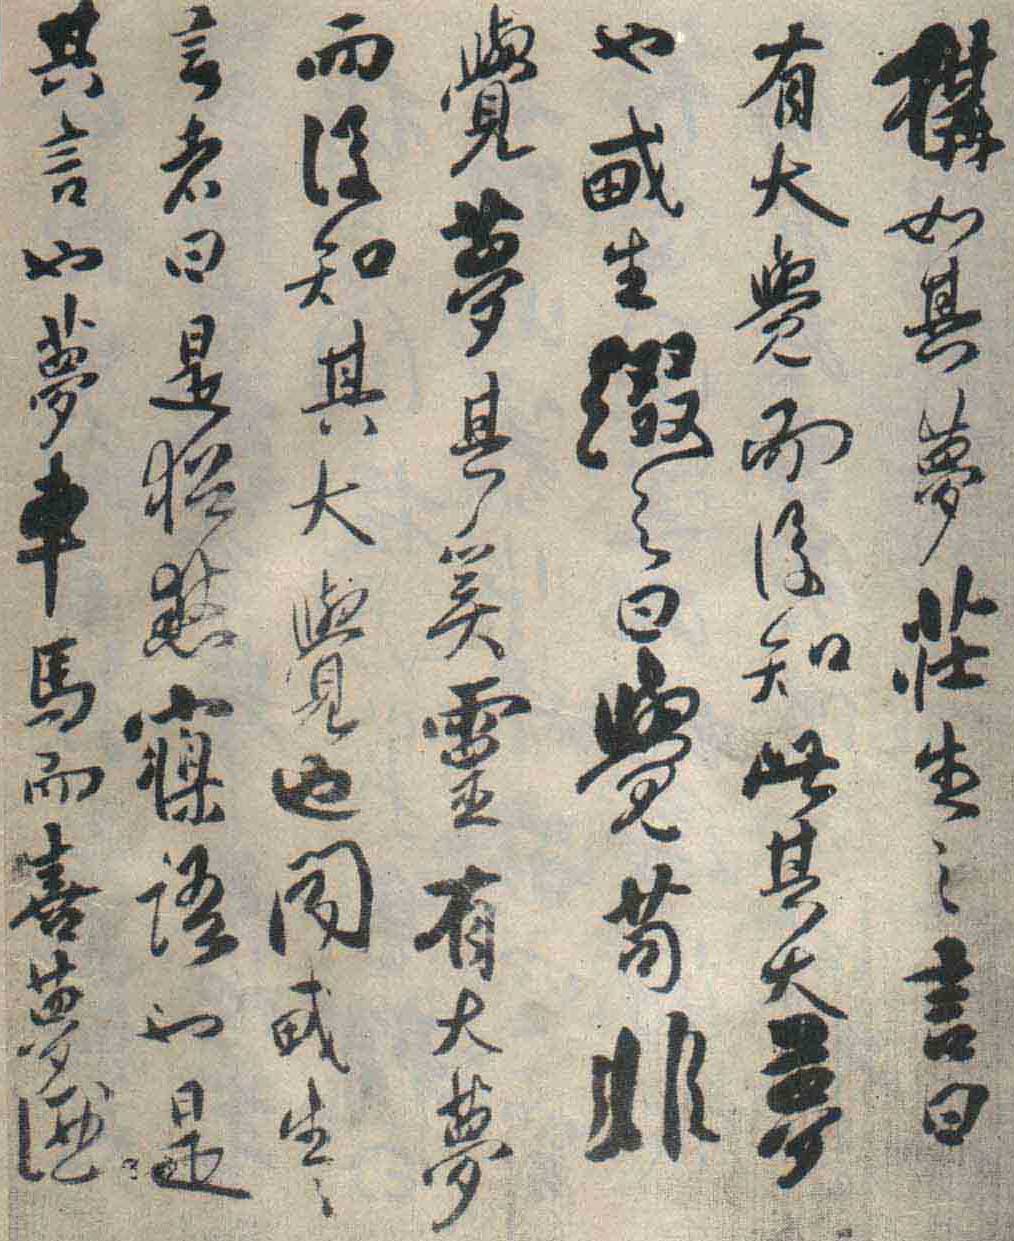 構如其夢莊生之言曰
有大覺而後知此其大夢
也生綴之曰覺苟非
覺夢其奚靈有大夢
而後知其大覺也聞生之
言者曰是猶語也是
其言也夢車馬而喜夢